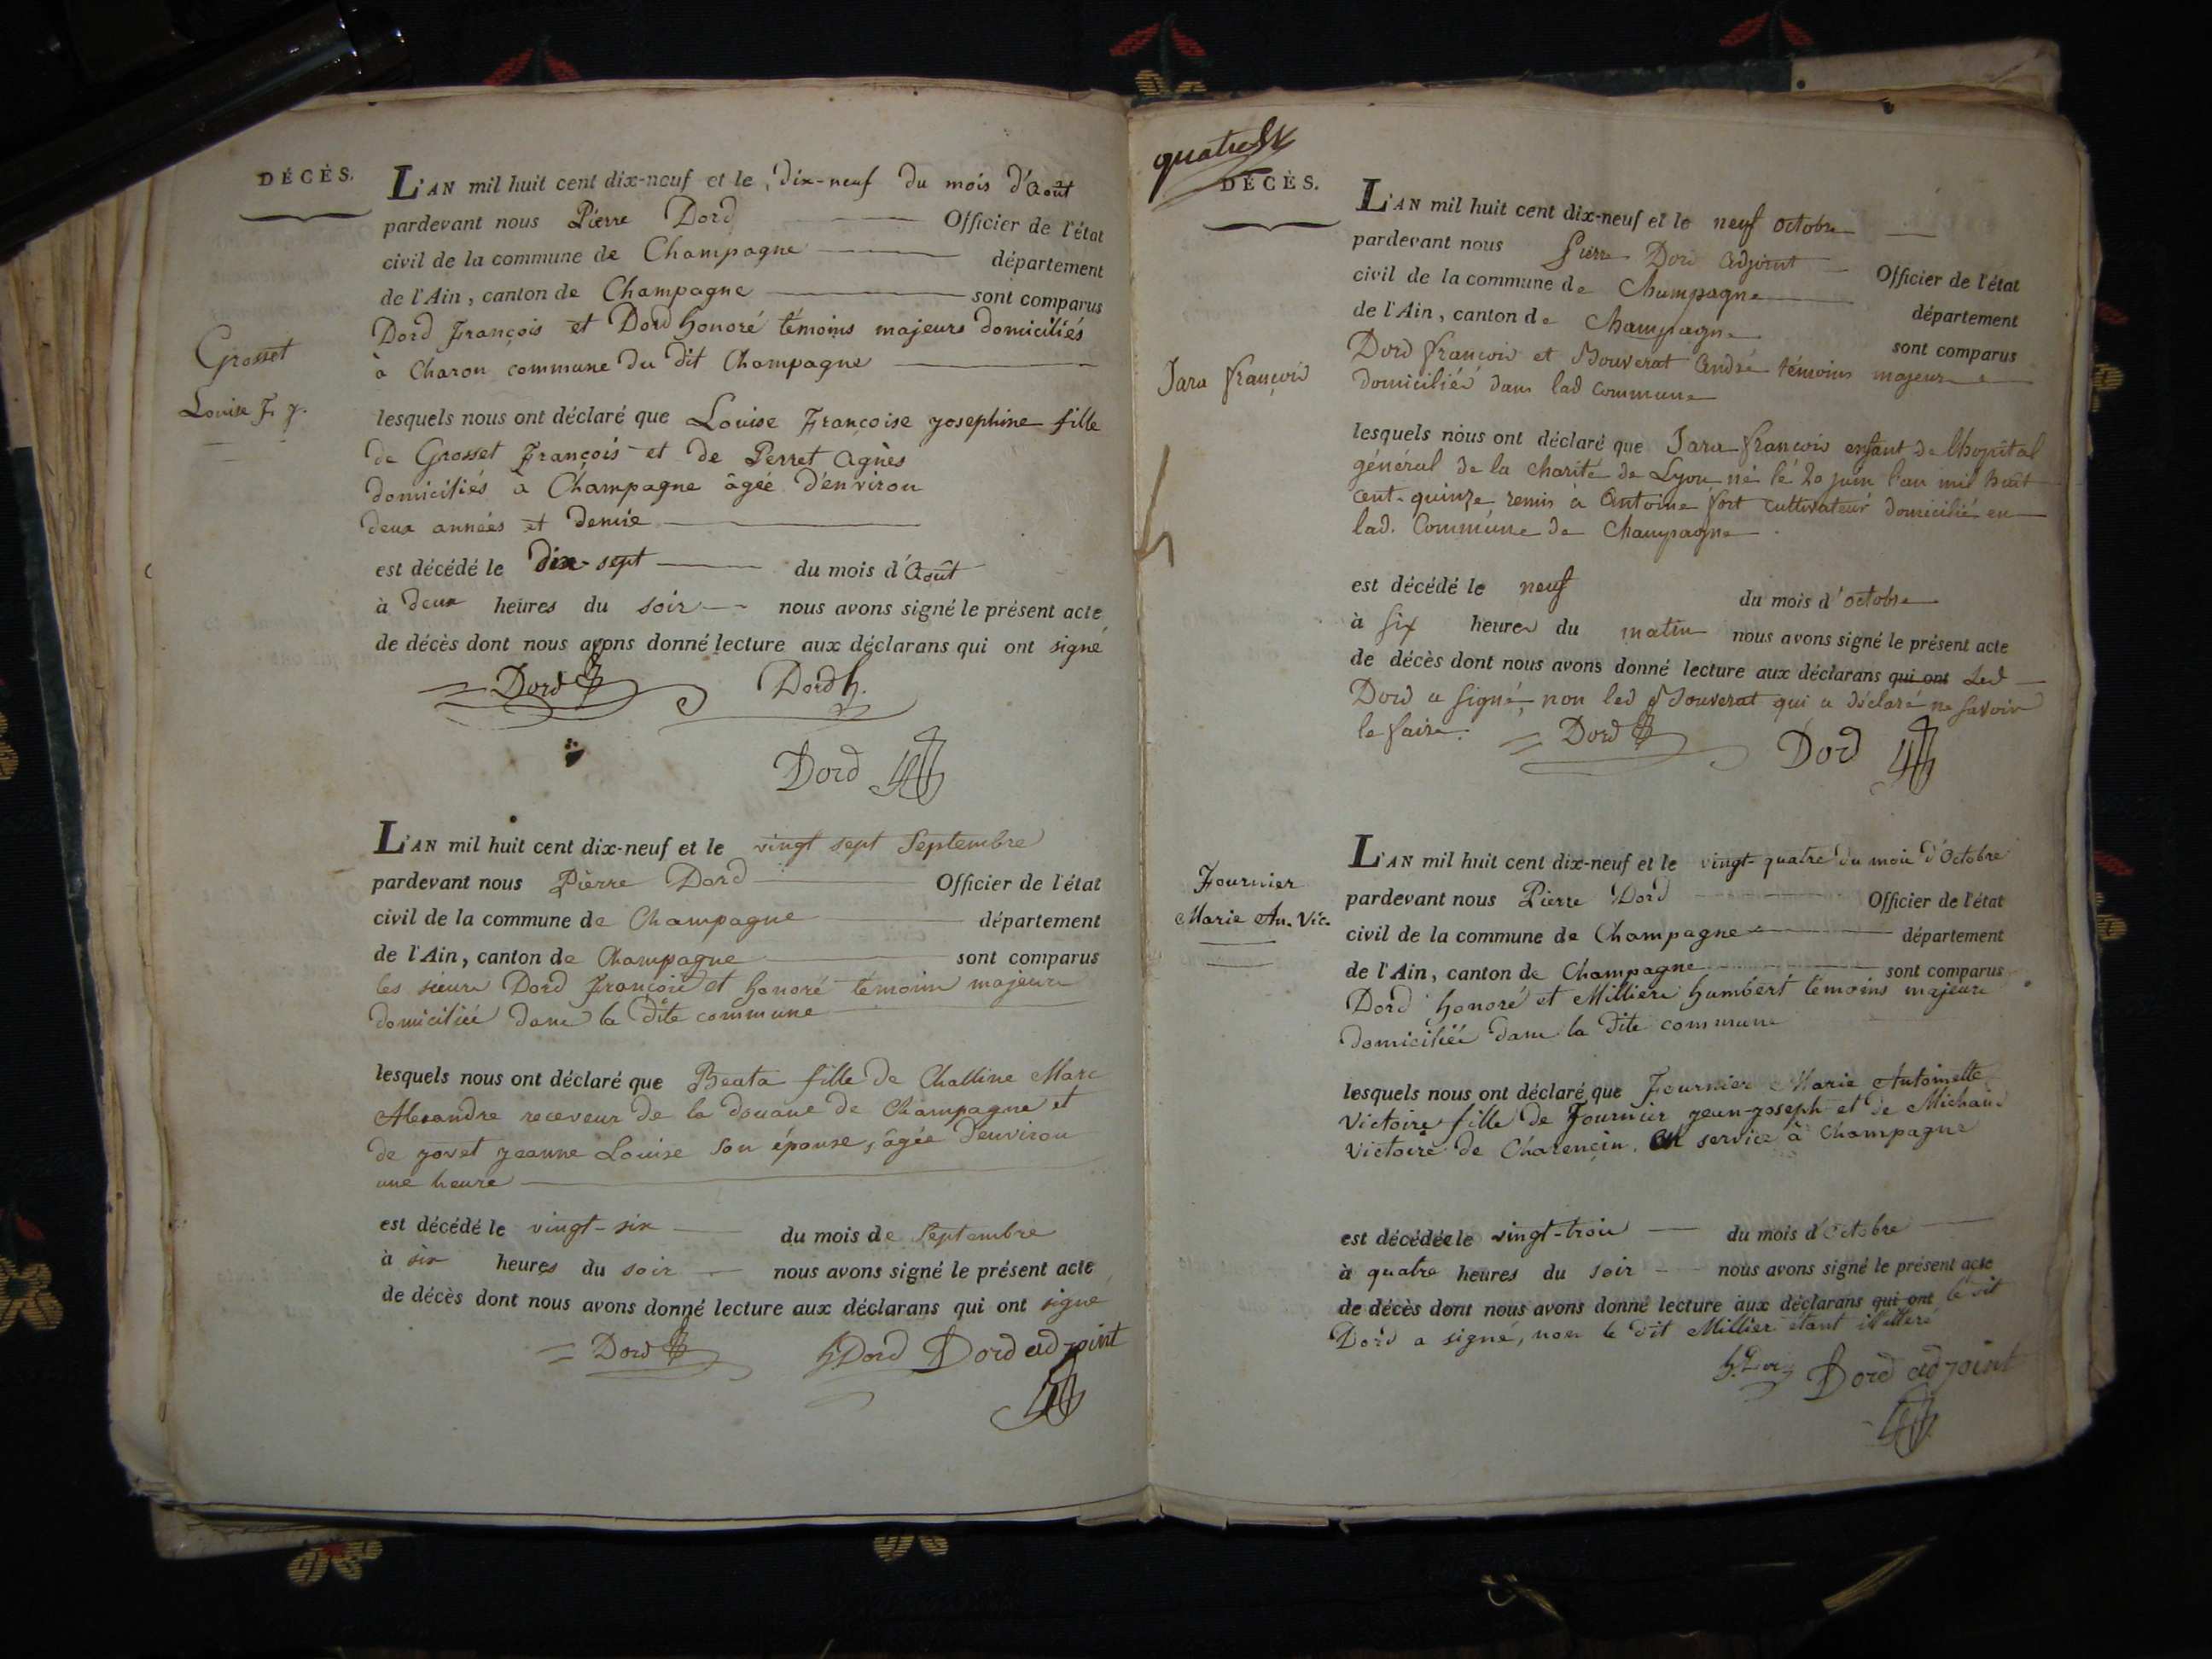 DÉCÈS.
L'AN mil huit cent dix-neuf et le dix-neuf du mois d'Août
pardevant nous Pierre Dord Officier de l'état
civil de la commune de Champagne département
de l'Ain, canton de Champagne sont comparus
Dord François et Dord honoré témoins majeurs domiciliés
à Charon commune du dit Champagne
Grosset
Louise F. J.
lesquels nous ont déclaré que Louise Françoise Josephine fille
de Grosset François et de Perret Agnès
domiciliés à Champagne âgée d'environ
deux années et demie
est décédé le dix-sept du mois d'Août
à deux heures du soir nous avons signé le présent acte
de décès dont nous avons donné lecture aux déclarans qui ont signé
Dord Dord h.
Dord
L'AN mil huit cent dix-neuf et le vingt sept Septembre
pardevant nous Pierre Dord Officier de l'état
civil de la commune de Champagne département
de l'Ain, canton de Champagne sont comparus
les sieurs Dord François et honoré témoins majeurs
domiciliés dans la dite commune
lesquels nous ont déclaré que Beata fille de Challine Marc
Alexandre receveur de la douane de Champagne et
de Jovet Jeanne Louise son épouse, âgée d'environ
une heure
est décédé le vingt-six du mois de Septembre
à six heures du soir nous avons signé le présent acte
de décès dont nous avons donné lecture aux déclarans qui ont signé
Dord h Dord Dord adjoint
DÉCÈS.
L'AN mil huit cent dix-neuf et le neuf octobre
pardevant nous Pierre Dord adjoint Officier de l'état
civil de la commune de Champagne département
de l'Ain, canton de Champagne sont comparus
Dord françois et Bouverat André témoins majeurs
domiciliés dans lad commune
Jara françois
lesquels nous ont déclaré que Jara françois enfant de l'hopital
général de la charité de Lyon né le 20 juin l'an mil huit
cent-quinze, remis à Antoine fort cultivateur domicilié en
lad. Commune de Champagne.
est décédé le neuf du mois d'octobre
à six heures du matin nous avons signé le présent acte
de décès dont nous avons donné lecture aux déclarans qui ont Led
Dord a signé, non led Bouverat qui a déclaré ne savoir
le faire. Dord Dord
L'AN mil huit cent dix-neuf et le vingt-quatre du mois d'Octobre
pardevant nous Pierre Dord Officier de l'état
civil de la commune de Champagne département
de l'Ain, canton de Champagne sont comparus
Dord honoré et Millier humbert témoins majeurs
domiciliés dans la dite commune
Fournier
Marie An. Vic.
lesquels nous ont déclaré que Fournier Marie Antoinette
Victoire fille de Fournier Jean-Joseph et de Michaud
Victoire de Charencin. en service à Champagne
est décédée le vingt-trois du mois d'Octobre
à quatre heures du soir nous avons signé le présent acte
de décès dont nous avons donné lecture aux déclarans qui ont le dit
Dord a signé, non le dit Millier étant illitteré
h. Dord Dord adjoint